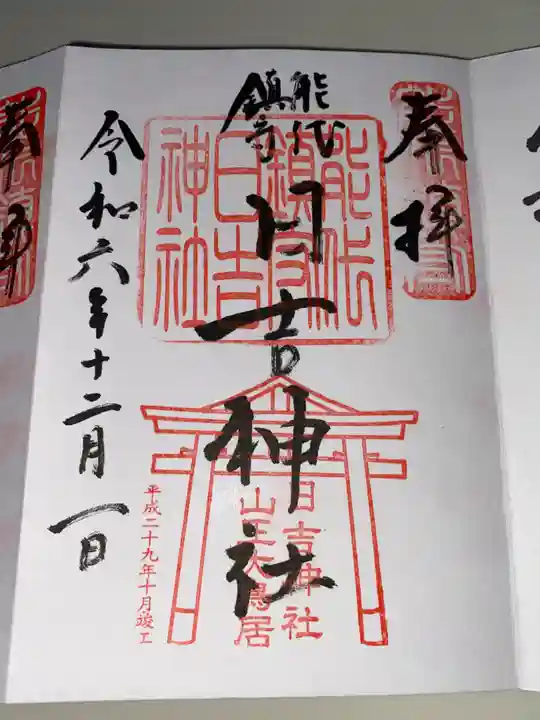 奉拝
能代
鎮守
日吉神社
能代
鎮守
日吉
神社
日吉神社
山王大鳥居
平成二十九年十月竣工
令和六年十二月一日
奉拝